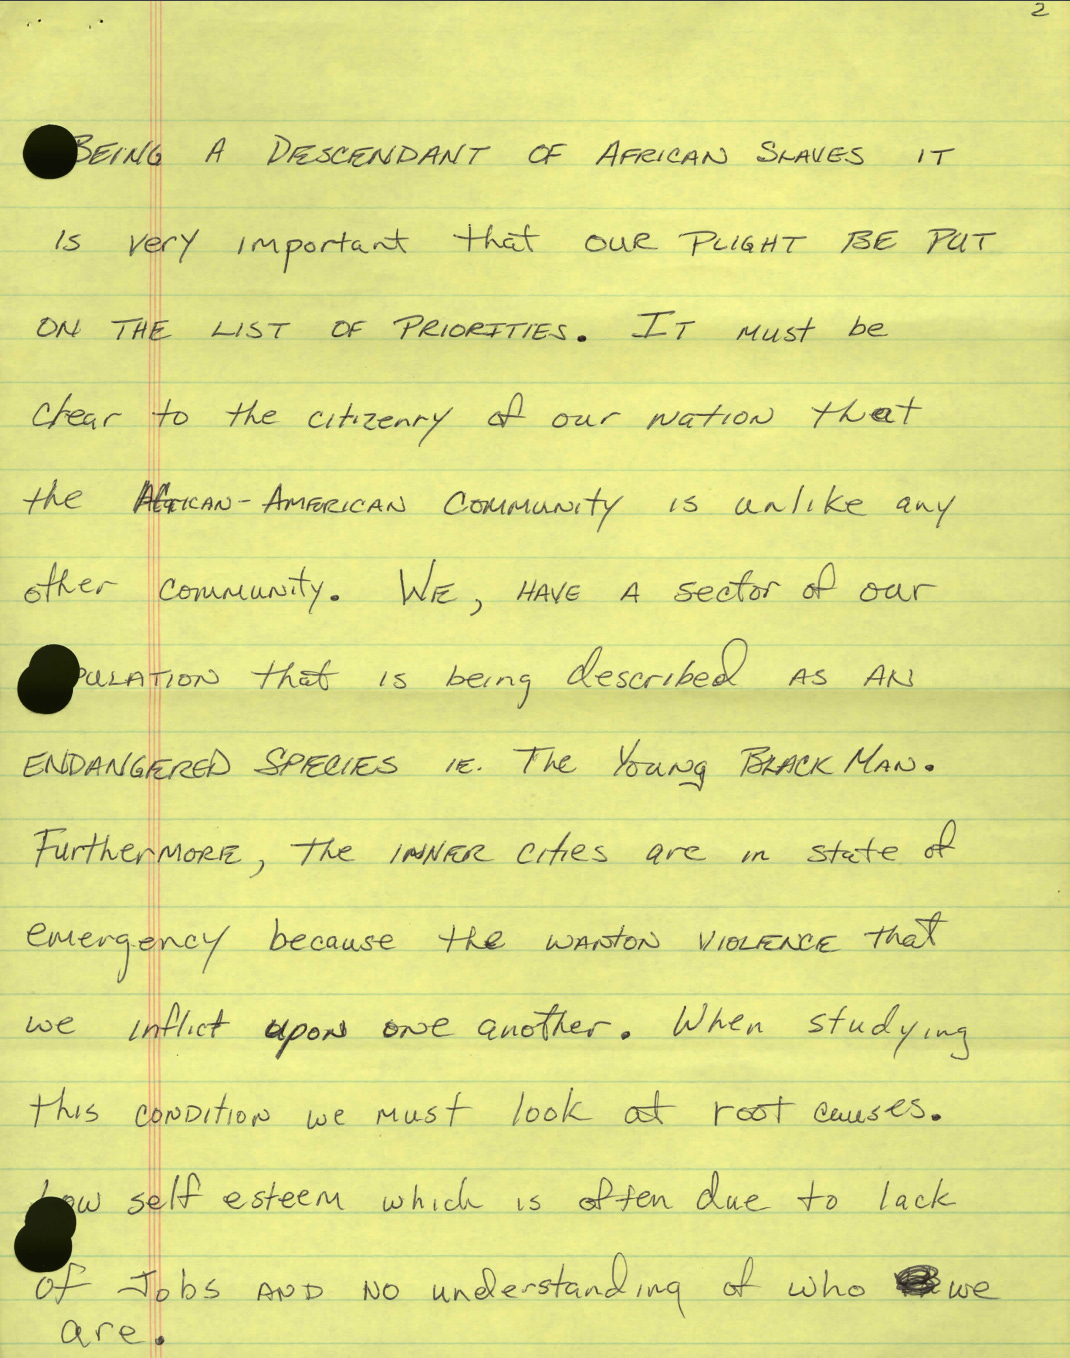 2
BEING A DESCENDANT OF AFRICAN SLAVES IT
IS very important that OUR PLIGHT BE PUT
ON THE LIST OF PRIORITIES. IT must be
clear to the citizenry of our nation that
the AFRICAN-AMERICAN COMMUNITY is unlike any
other community. WE, HAVE A sector of our
PULATION that is being described AS AN
ENDANGERED SPECIES IE. The Young BLACK MAN.
FurtherMORE, the INNER cities are in state of
emergency because the WANTON VIOLENCE that
we inflict upon one another. When studying
this CONDITION we must look at root causes.
Low self esteem which is often due to lack
of Jobs AND NO understanding of who we
are.